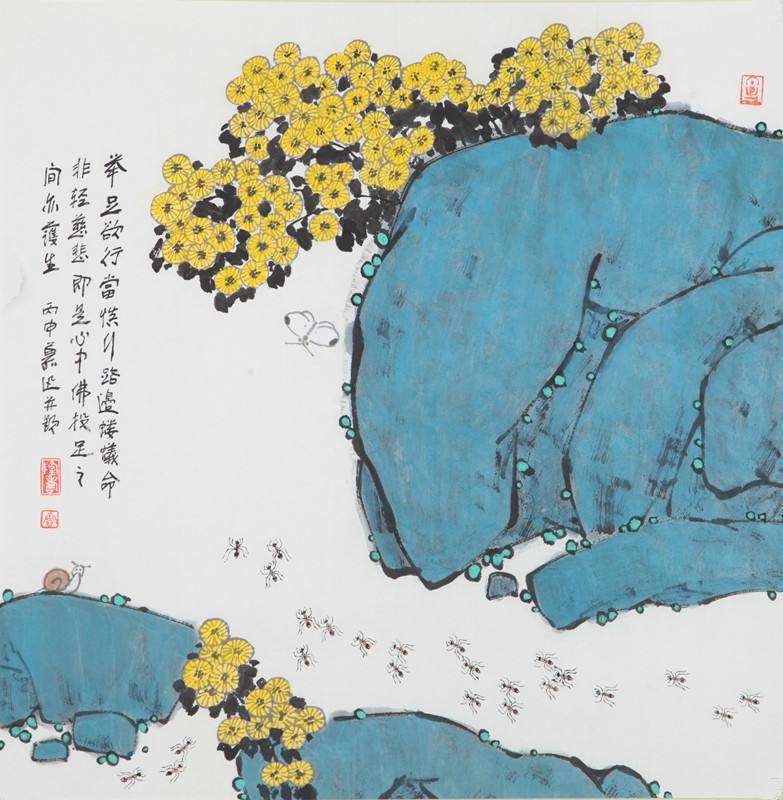 举足欲行當慎行路邊蝼蟻命
非轻慈悲即是心中佛投足之
间亦護生 丙申 并题